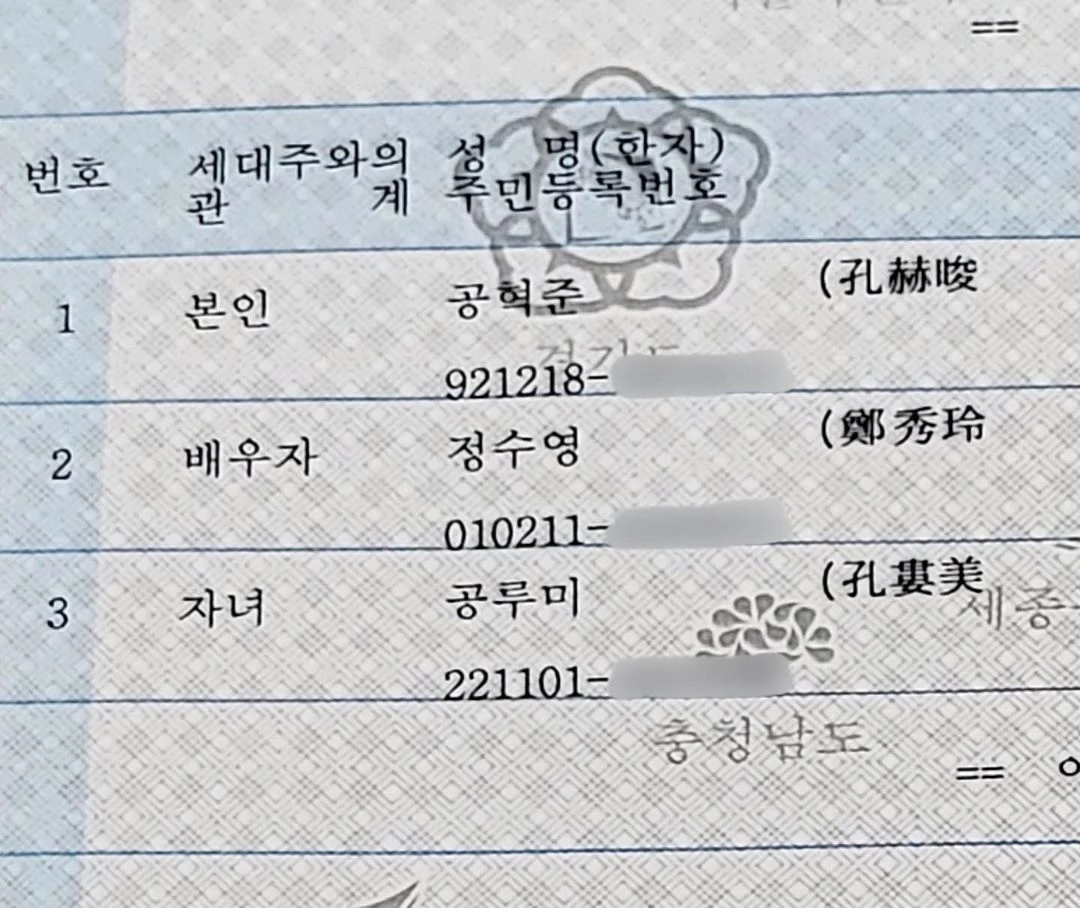 ==
번호 세대주와의 성 명(한자)
관 계 주민등록번호
1 본인 공혁준 (孔赫晙
921218-
2 배우자 정수영 (鄭秀玲
010211-
3 자녀 공루미 (孔婁美
세종
221101-
충청남도
==